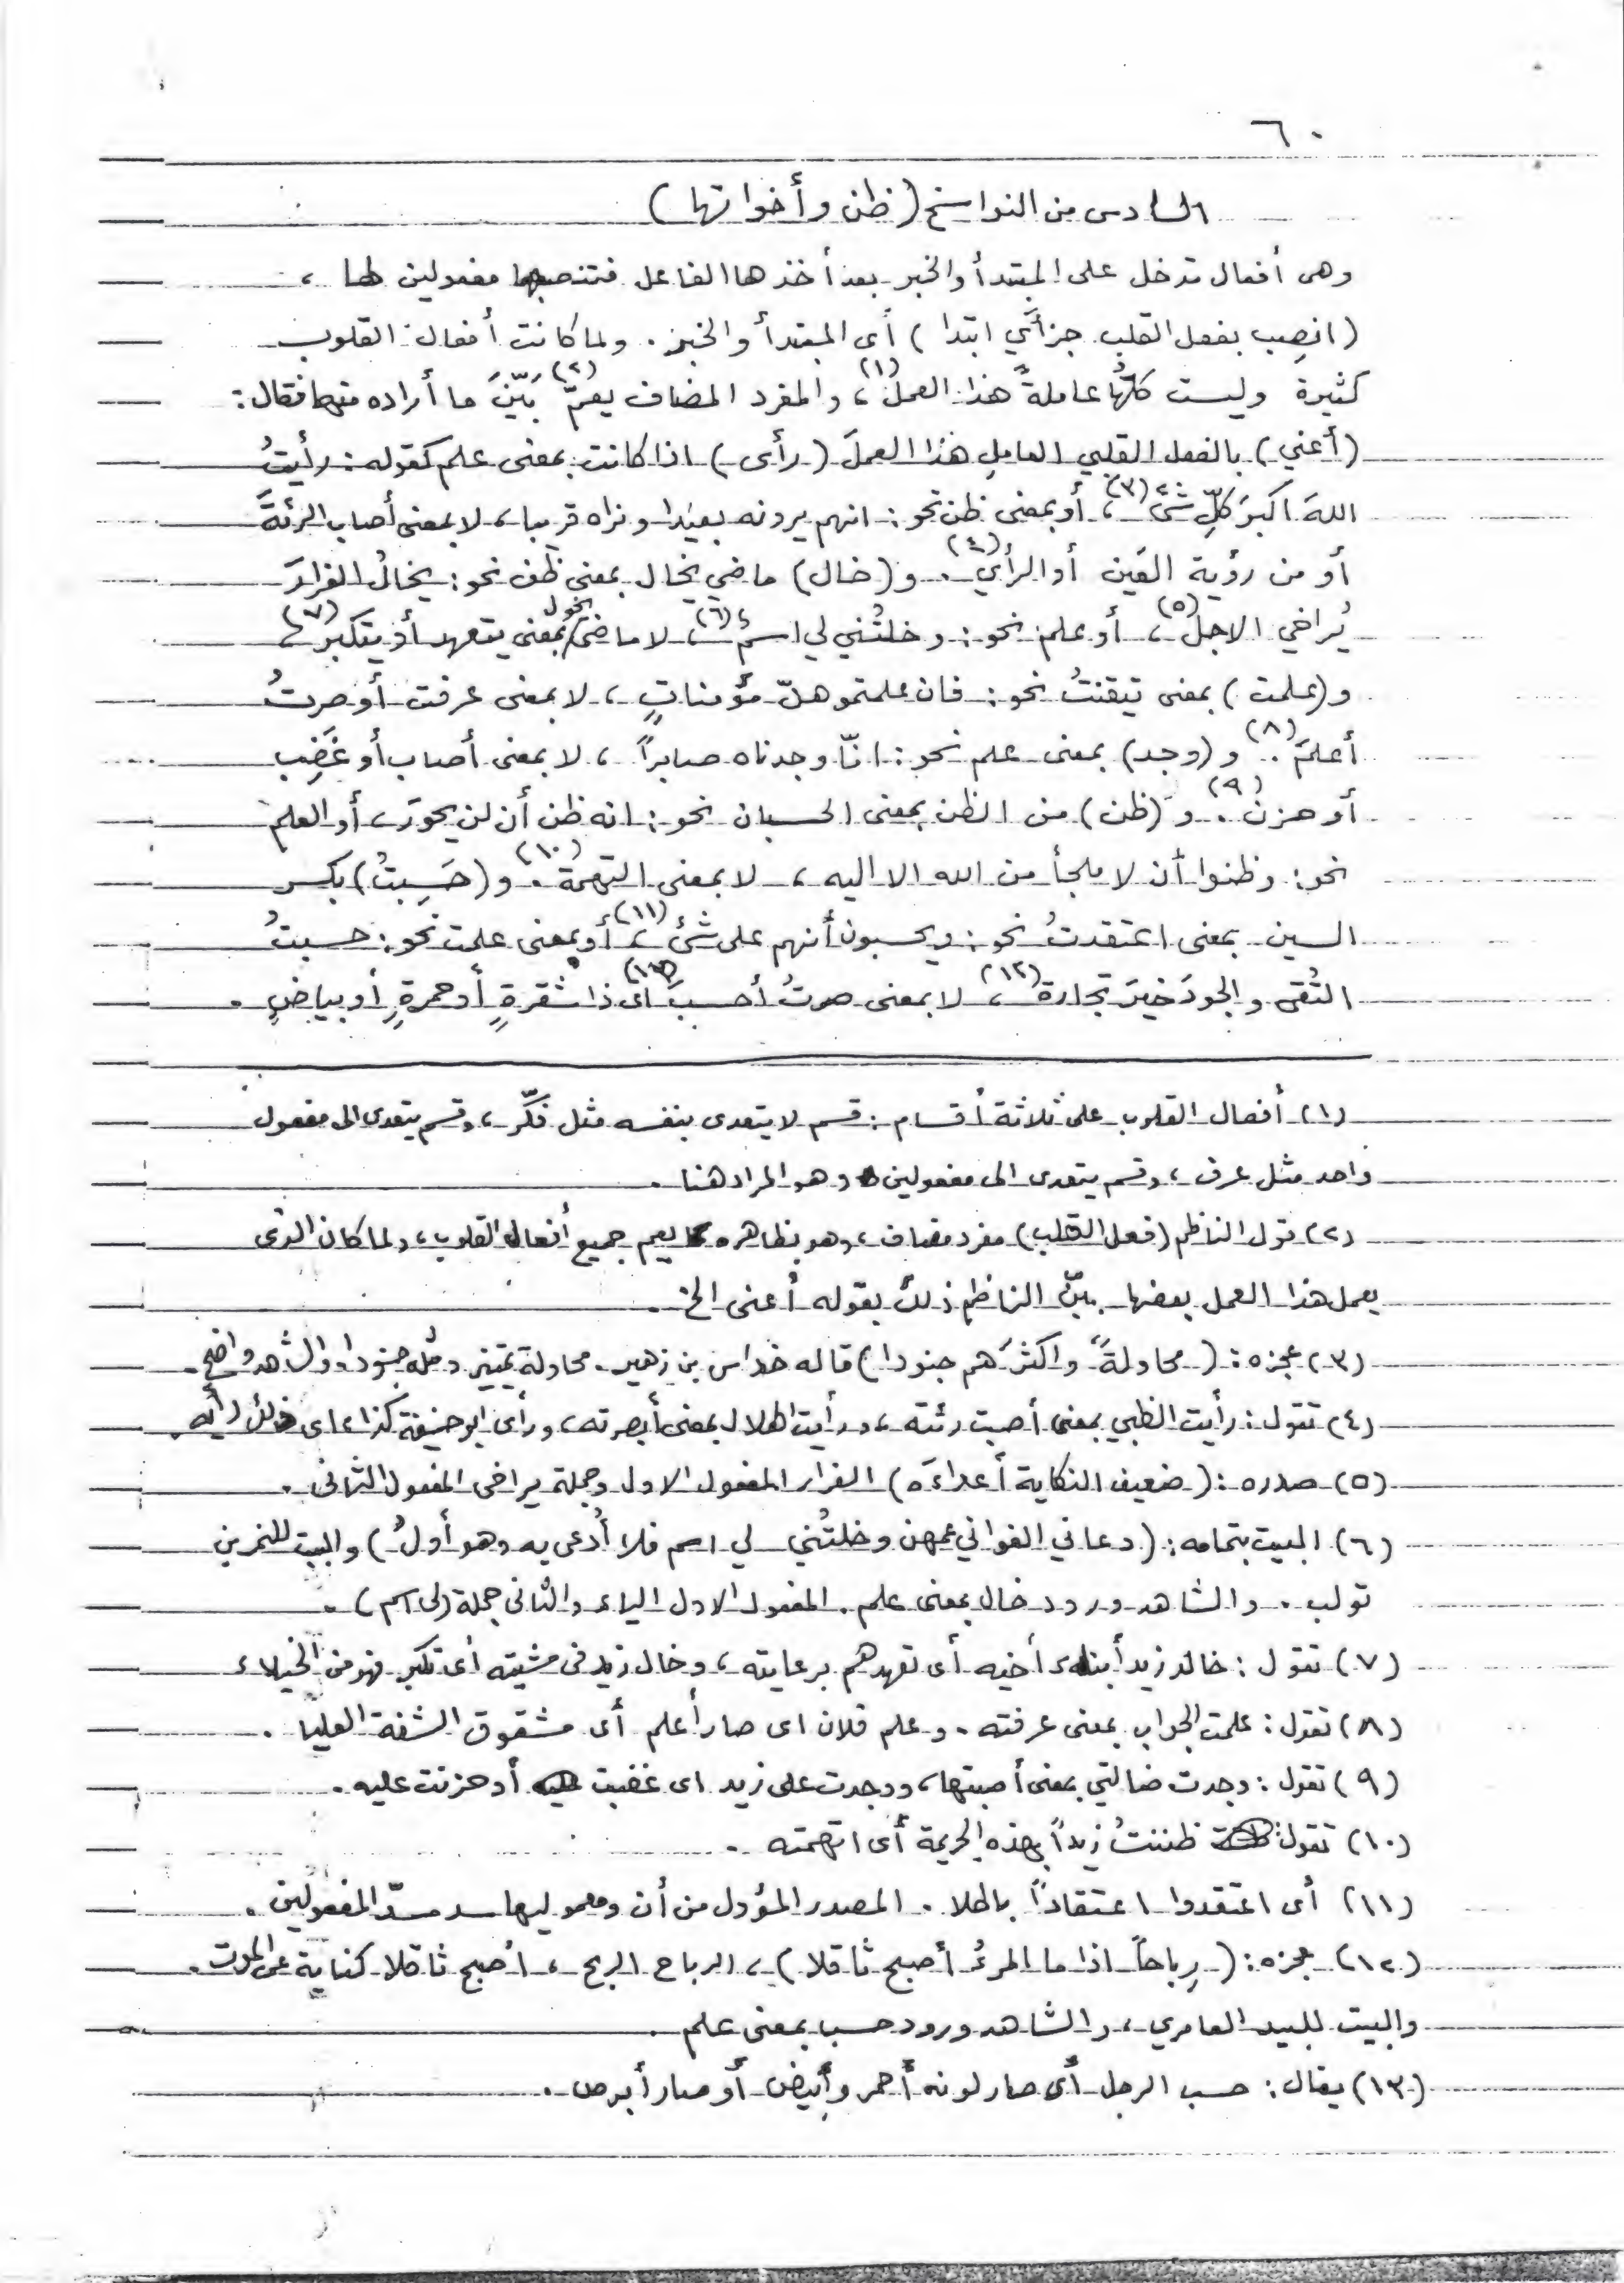 ٦٠
السادس من النواسخ (ظن وأخواتها)
وهى أفعال تدخل على المبتدأ والخبر بعد أخذها الفاعل فتنصبهما مفعولين لها ،
(انصِب بفعل القلب جزأَي ابتدا) أى المبتدأ والخبر . ولما كانت أفعال القلوب
كثيرة وليست كلُّها عاملةً هذا العمل (١) ، والمفرد المضاف يعمّ (٢) بَيّنَ ما أراده منها فقال :
(أعني) بالفعل القلبي العامل هذا العملَ (رأى) اذا كانت بمعنى علم كقوله : رأيتُ
اللهَ اكبرَ كلِّ شئ (٣) ، أو بمعنى ظن نحو : انهم يرونه بعيدا ونراه قريبا ، لا بمعنى أصاب الرئةَ
أو من رؤية العَين أو الرأي (٤) . و (خال) ماضي يخال بمعنى ظن نحو : يخالُ الفرارَ
يُراخي الاجل (٥) ، أو علم نحو : وخلتُني لي اسم (٦) ، لا ماضى يخول بمعنى يتعهد أو يتكبر (٧) ،
و (علمت) بمعنى تيقنتُ نحو : فان علمتموهنّ مؤمناتٍ ، لا بمعنى عرفت أو صرتُ
أعلمَ (٨) . و (وجد) بمعنى علم نحو : انّا وجدناه صابراً ، لا بمعنى أصاب أو غَضِب
أو حزن (٩) . و (ظن) من الظن بمعنى الحسبان نحو : انه ظن أن لن يحورَ ، أو العلم
نحو : وظنوا أن لا ملجأ من الله الا اليه ، لا بمعنى التهمة (١٠) . و (حَسِبتُ) بكسر
السين بمعنى اعتقدتُ نحو : ويحسبون أنهم على شئ (١١) ، أو بمعنى علمت نحو : حسبتُ
التُقى والجودَ خيرَ تجارة (١٢) ، لا بمعنى صرتُ أحسبَ (١٣) اى ذا شقرةٍ أو حمرةٍ أو بياضٍ .
(١) أفعال القلوب على ثلاثة أقسام : قسم لا يتعدى بنفسه مثل فكّر ، وقسم يتعدى الى مفعول
واحد مثل عرف ، وقسم يتعدى الى مفعولين وهو المراد هنا .
(٢) قول الناظم (فعل القلب) مفرد مضاف ، وهو بظاهره يعم جميع أفعال القلوب ، ولما كان الذى
يعمل هذا العمل بعضها بيّن الناظم ذلك بقوله أعنى الخ .
(٣) عجزه : (محاولةً واكثرَهم جنودا) قاله خداس بن زهير . محاولة تمييز ومثله جنودا ، والشاهد واضح .
(٤) تقول : رأيت الظبي بمعنى أصبت رئته ، ورأيت الهلال بمعنى أبصرته ، ورأى ابو حنيفة كذا ، اى ذلك رأيه .
(٥) صدره : (ضعيف النكاية أعداءَه) الفرار المفعول الاول وجملة يراخى المفعول الثانى .
(٦) البيت بتمامه : (دعاني الغواني عمهن وخلتُني لي اسم فلا أُدعى به وهو أولُ) والبيت للنمر بن
تولب . والشاهد ورود خال بمعنى علم . المفعول الاول الياء والثانى جملة (لى اسم) .
(٧) تقول : خال زيد أبناء أخيه أى تعهدهم برعايته ، وخال زيد فى مشيته أى تكبر فهو من الخيلاء
(٨) تقول : علمت الجواب بمعنى عرفته . وعلم فلان اى صار أعلم أى مشقوق الشفة العليا .
(٩) تقول : وجدت ضالتي بمعنى أصبتها ، ووجدت على زيد اى غضبت أو حزنت عليه .
(١٠) تقول : ظننتُ زيداً بهذه الجريمة أى اتهمته .
(١١) أى اعتقدوا اعتقاداً باطلا . المصدر المؤول من أن ومعموليها سد مسدّ المفعولين .
(١٢) عجزه : (رِباحاً اذا ما المرءُ أصبح ثاقلا) ، الرباح الربح ، أصبح ثاقلا كناية عن الموت .
والبيت للبيد العامري ، والشاهد ورود حسب بمعنى علم .
(١٣) يقال : حسب الرجل أى صار لونه أحمر وأبيض أو صار أبرص .